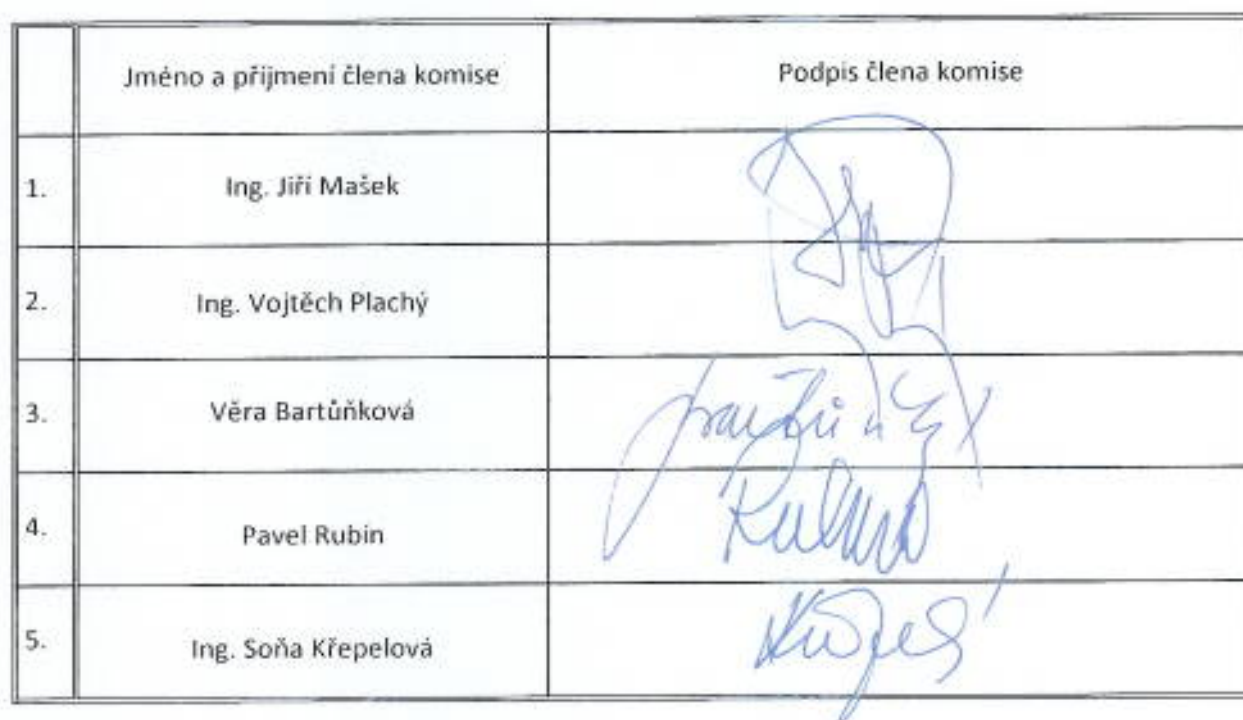 Jméno a příjmení člena komise Podpis člena komise
1. Ing. Jiří Mašek
2. Ing. Vojtěch Plachý
3. Věra Bartůňková
4. Pavel Rubin
5. Ing. Soňa Křepelová